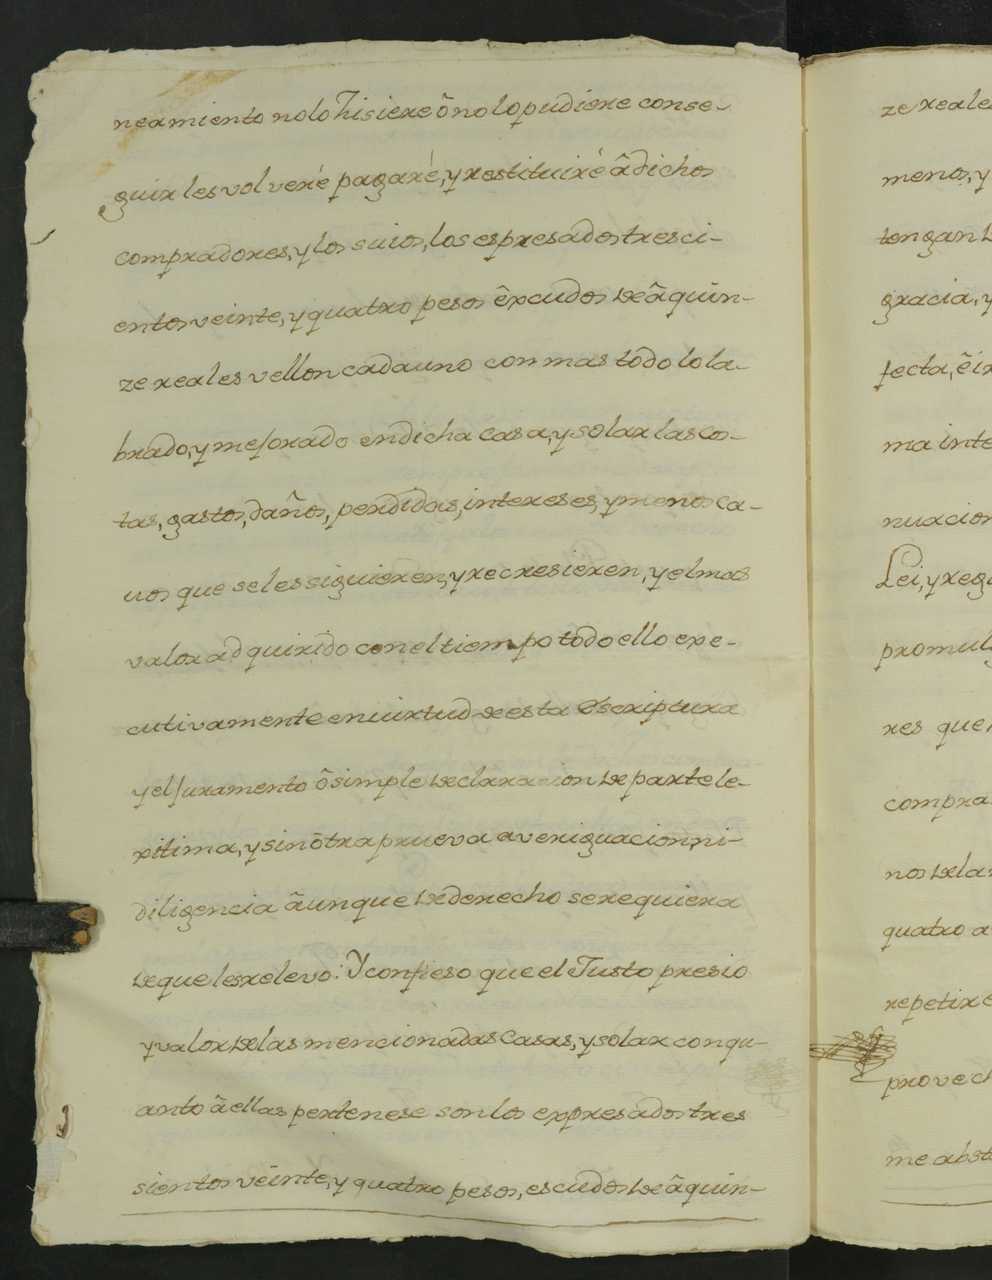 neamiento no lo hisiere ô no lo pudiere conse-
guir les volveré pagaré, y restituiré â dichos
compradores, y los suios, los espresados tresci-
entos veinte, y quatro pesos êxcudos de â quin-
ze reales vellon cada uno con mas todo lo la-
brado, y mejorado en dicha casa, y solar las cos-
tas, gastos, daños, perdidas, intereses, y menosca-
vos que se les siguieren, y recresieren, y el mas
valor adquirido con el tiempo todo ello exe-
cutivamente en virtud de esta Escriptura
y el juramento ô simple declaracion de parte le-
xitima, y sin ôtra prueva averiguacion, ni
diligencia âunque de derecho se requiera
de que les relevo: Y confieso que el Justo presio
y valor de las mencionadas casas, y solar con qu-
anto â ellas pertenese son los expresados tres
sientos veinte, y quatro pesos, escudos de â quin-
ze reales
menos, y
tengan
gracia, y
fecta, ê
ma inte
nuacion
Lei, y
promul
res que
compra
nos de la
quatro a
repetir
provech
me abst